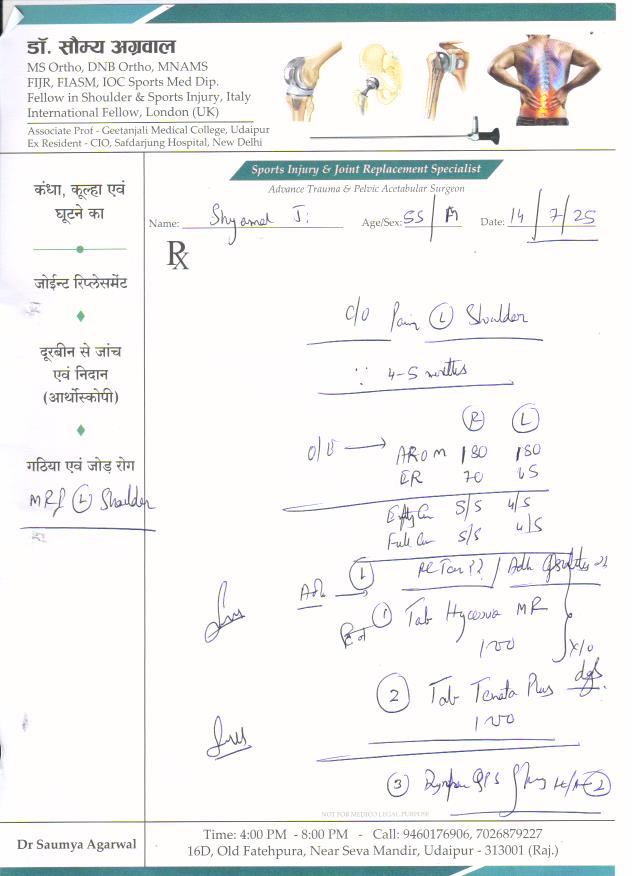 डॉ. सौम्य अग्रवाल
MS Ortho, DNB Ortho, MNAMS
FIJR, FIASM, IOC Sports Med Dip.
Fellow in Shoulder & Sports Injury, Italy
International Fellow, London (UK)
Associate Prof - Geetanjali Medical College, Udaipur
Ex Resident - CIO, Safdarjung Hospital, New Delhi
Sports Injury & Joint Replacement Specialist
Advance Trauma & Pelvic Acetabular Surgeon
Name: Shyamal Ji Age/Sex: 55/M Date: 14/7/25
कंधा, कूल्हा एवं
घूटने का
जोईन्ट रिप्लेसमेंट
दूरबीन से जांच
एवं निदान
(आर्थोस्कोपी)
गठिया एवं जोड़ रोग
MRI (L) Shoulder
Rx
c/o Pain (L) Shoulder
4-5 months
(R) (L)
O/E → AROM 180 180
ER 70 65
Empty Can 5/5 4/5
Full Can 5/5 4/5
(L)
(1) Tab MR
100
x10
days
(2) Tab Plus
100
(3)
NOT FOR MEDICO LEGAL PURPOSE
Dr Saumya Agarwal
Time: 4:00 PM - 8:00 PM - Call: 9460176906, 7026879227
16D, Old Fatehpura, Near Seva Mandir, Udaipur - 313001 (Raj.)